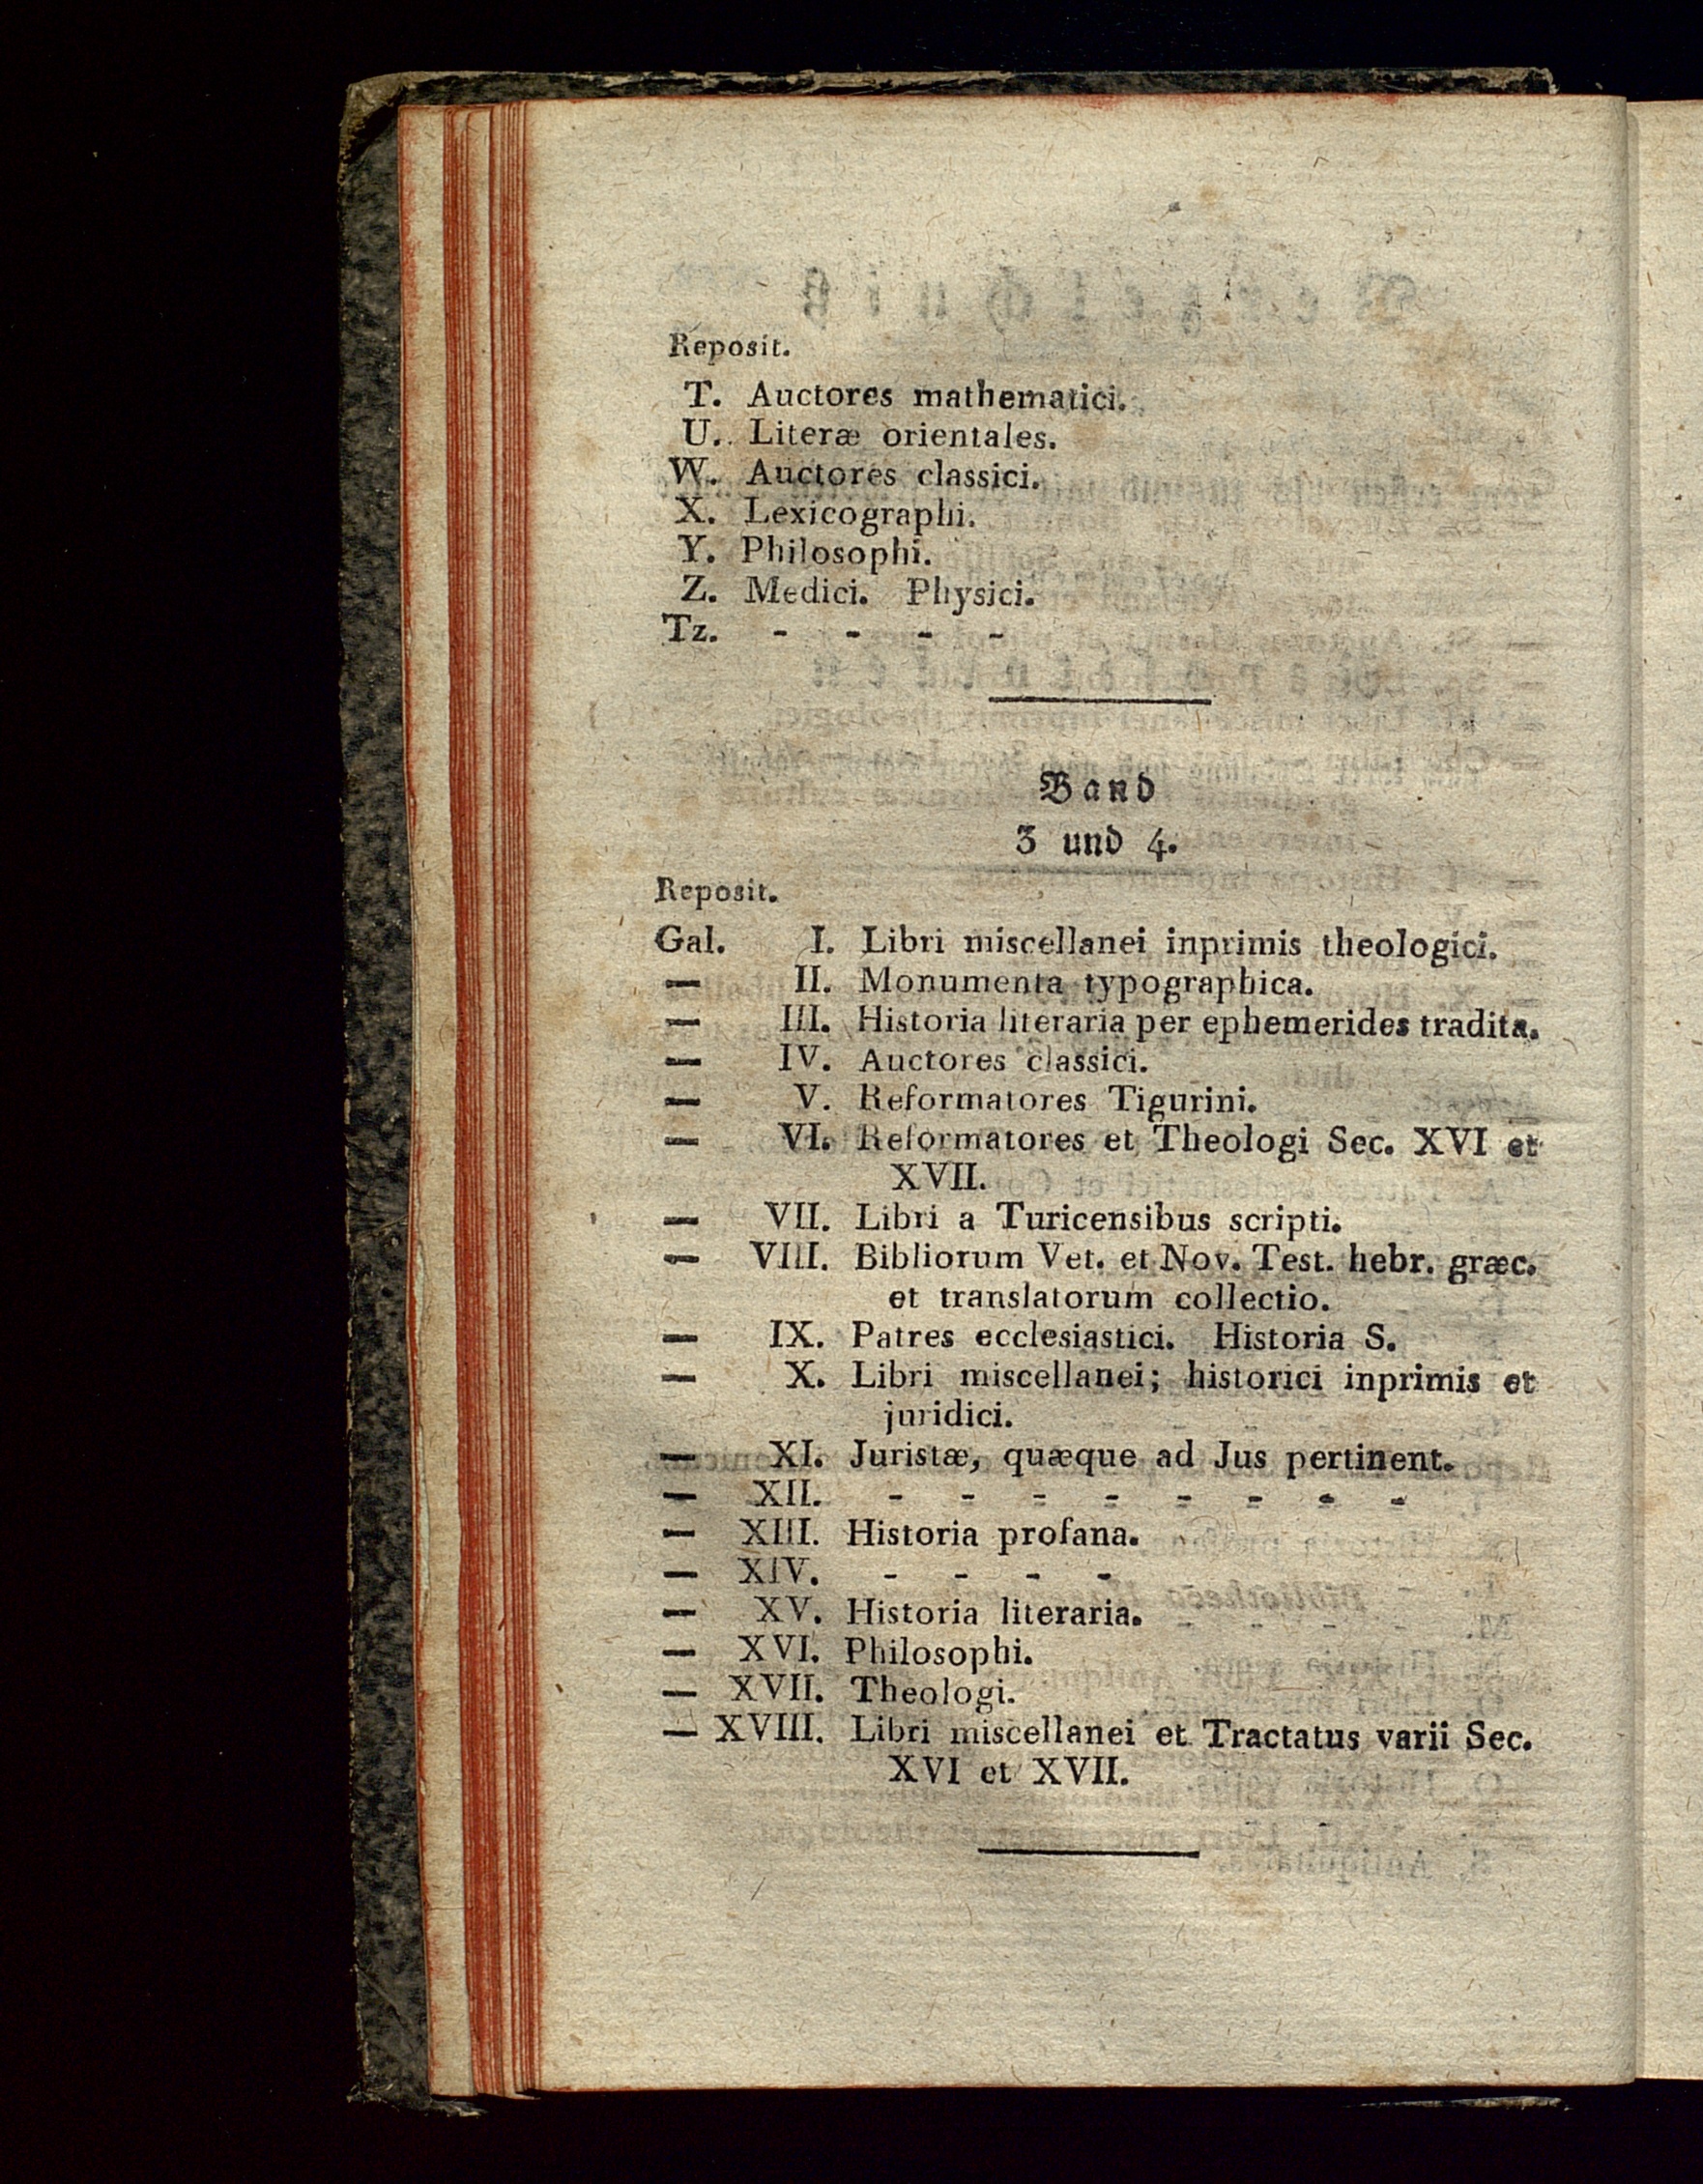 Reposit.
T. Auctores mathematici.
U. Literæ orientales.
W. Auctores classici.
X. Lexicographi.
Y. Philosophi.
Z. Medici. Physici.
Tz. - - - -
Band
3 und 4.
Reposit.
Gal. I. Libri miscellanei inprimis theologici.
— II. Monumenta typographica.
— III. Historia literaria per ephemerides tradita.
— IV. Auctores classici.
— V. Reformatores Tigurini.
— VI. Reformatores et Theologi Sec. XVI et
XVII.
— VII. Libri a Turicensibus scripti.
— VIII. Bibliorum Vet. et Nov. Test. hebr. græc.
et translatorum collectio.
— IX. Patres ecclesiastici. Historia S.
— X. Libri miscellanei; historici inprimis et
juridici.
— XI. Juristæ, quæque ad Jus pertinent.
— XII. - - - - - - - -
— XIII. Historia profana.
— XIV. - - - -
— XV. Historia literaria.
— XVI. Philosophi.
— XVII. Theologi.
— XVIII. Libri miscellanei et Tractatus varii Sec.
XVI et XVII.